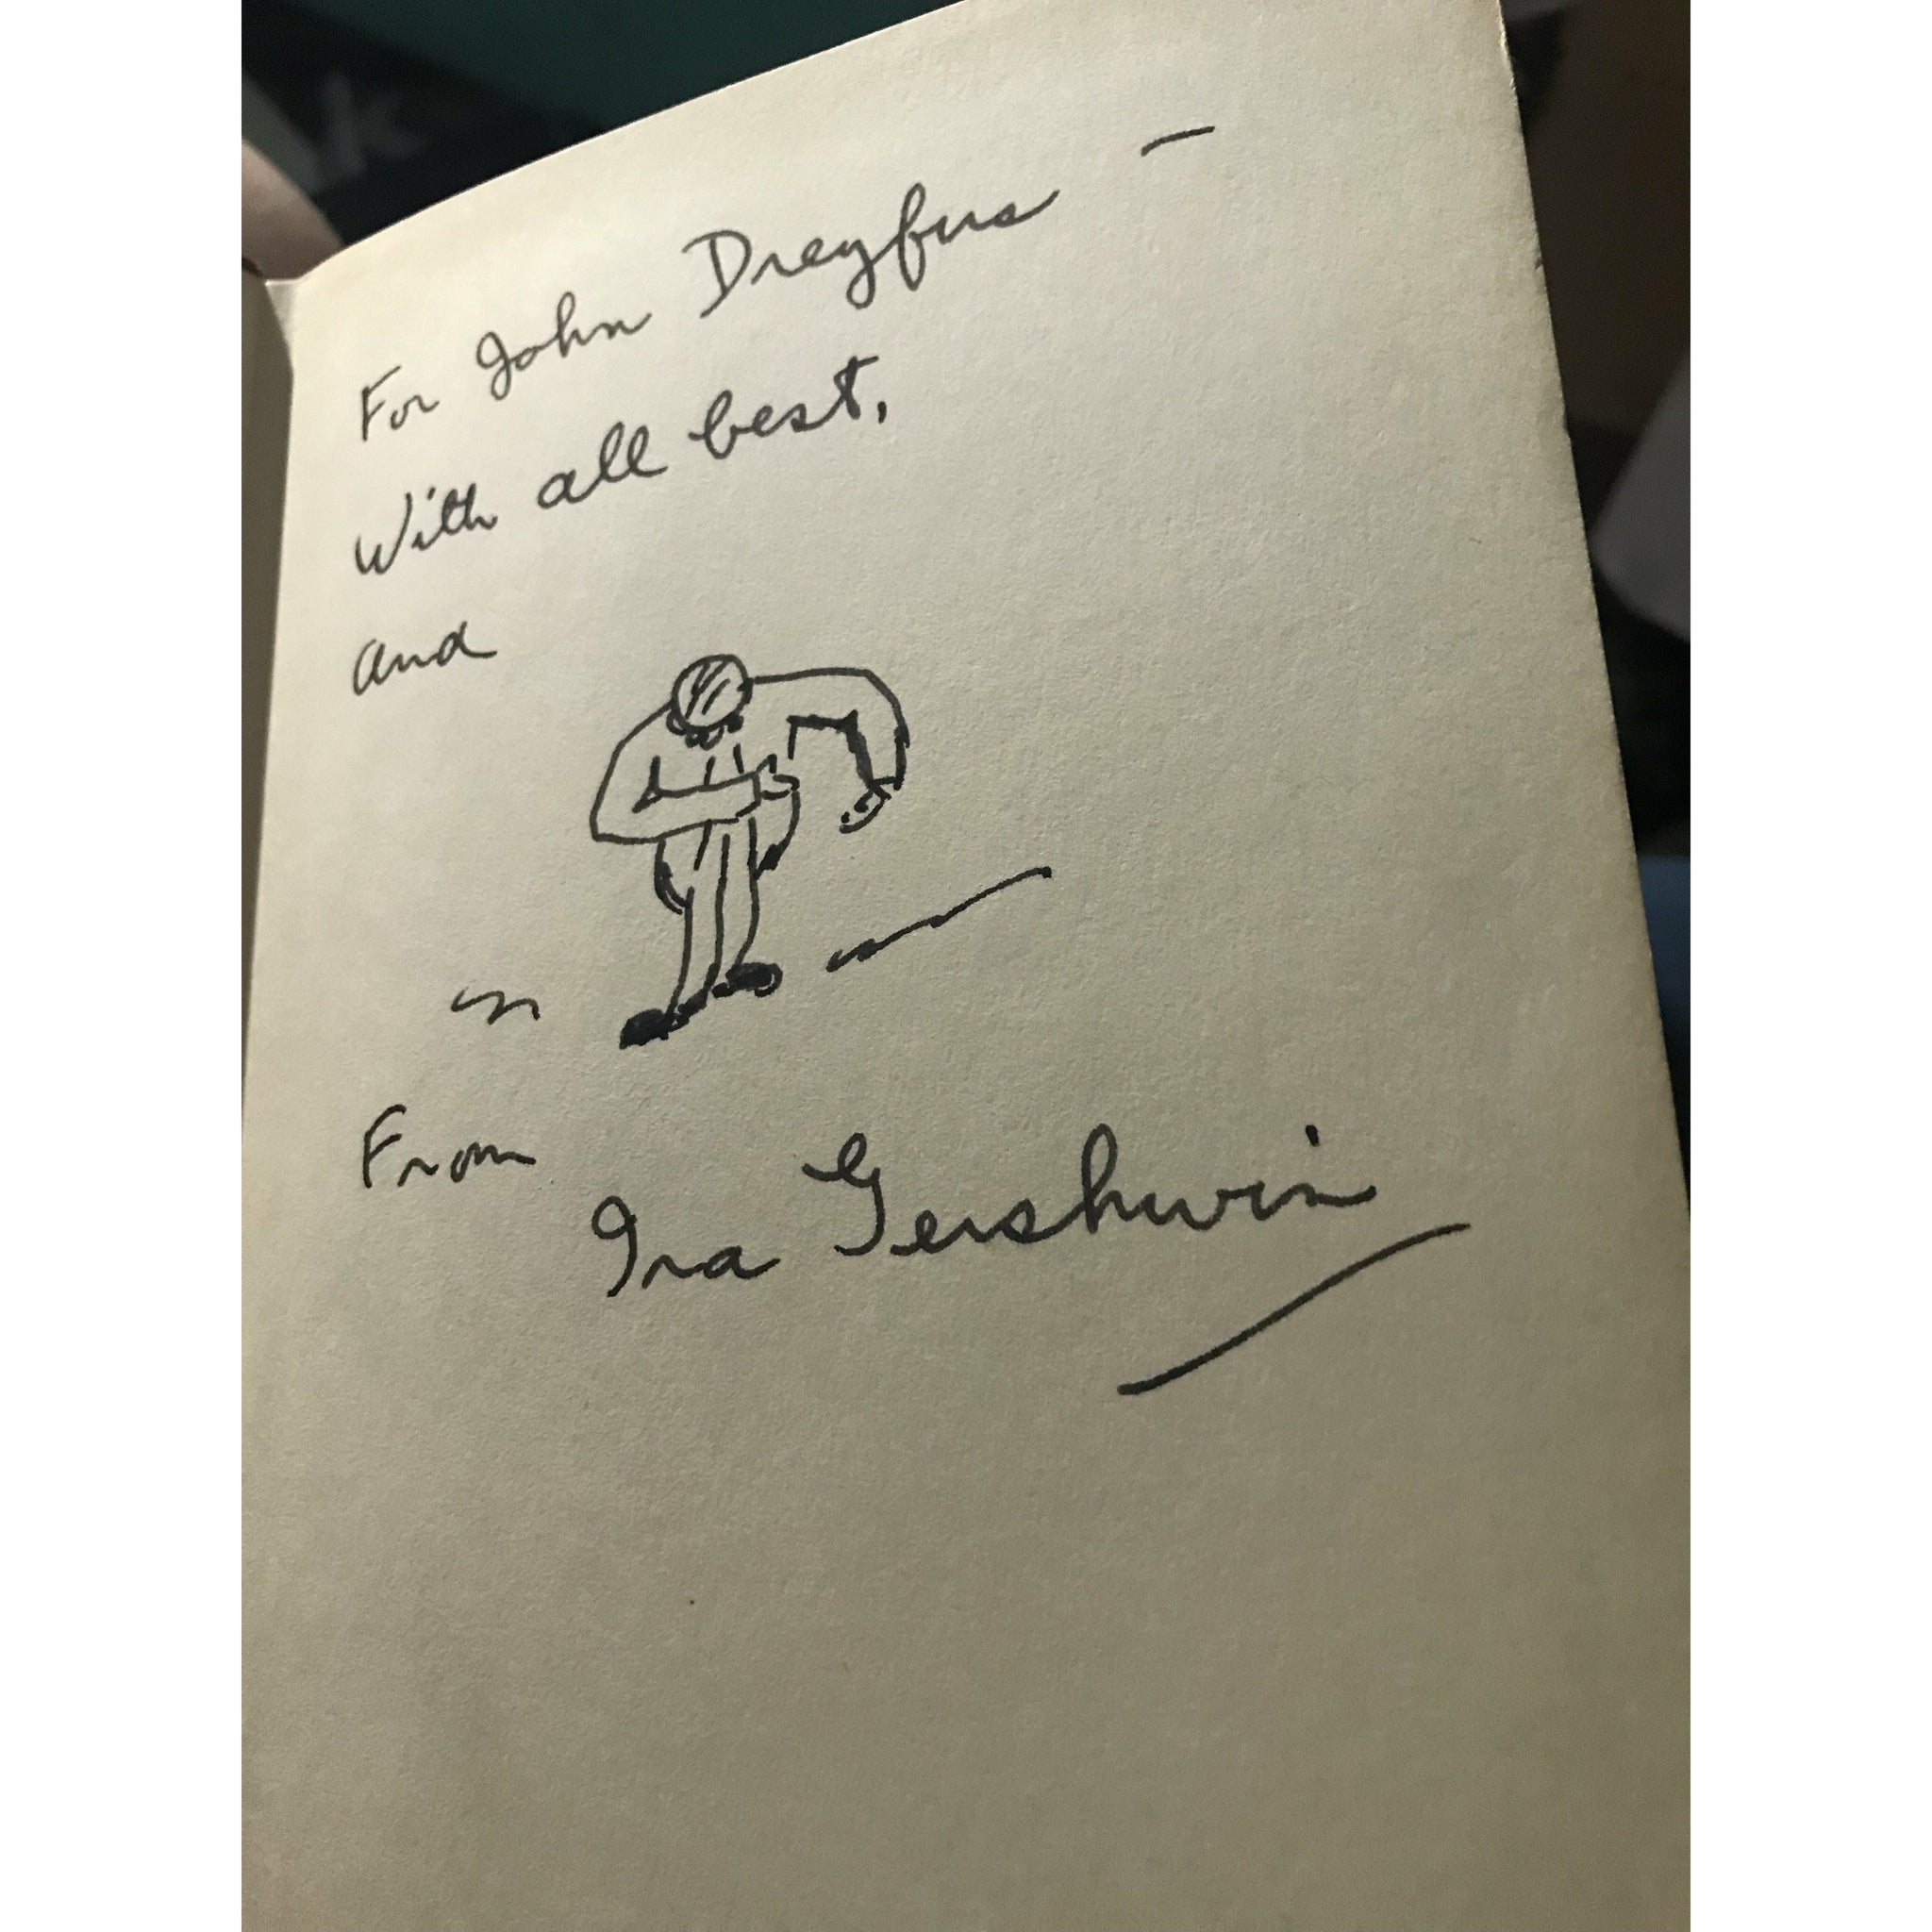 For John Dreyfus —
With all best,
and
From
Ira Gershwin